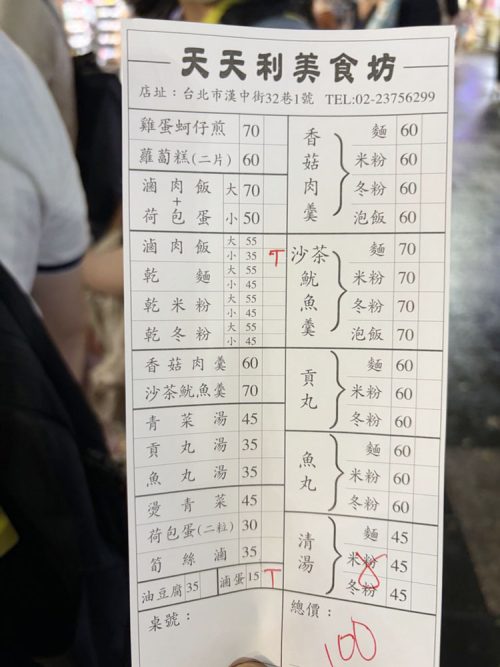 天天利美食坊
店址：台北市漢中街32巷1號 TEL:02-23756299
雞蛋蚵仔煎 70
蘿蔔糕(二片) 60
滷肉飯 大 70
+
荷包蛋 小 50
滷肉飯 大 55
小 35 T
乾麵 大 55
小 45
乾米粉 大 55
小 45
乾冬粉 大 55
小 45
香菇肉羹 60
沙茶魷魚羹 70
青菜湯 45
貢丸湯 35
魚丸湯 35
燙青菜 45
荷包蛋(二粒) 30
筍絲滷 35
油豆腐 35 滷蛋 15 T
桌號：
香菇肉羹
麵 60
米粉 60
冬粉 60
泡飯 60
沙茶魷魚羹
麵 70
米粉 70
冬粉 70
泡飯 70
貢丸
麵 60
米粉 60
冬粉 60
魚丸
麵 60
米粉 60
冬粉 60
清湯
麵 45
米粉 45
冬粉 45
總價：
100